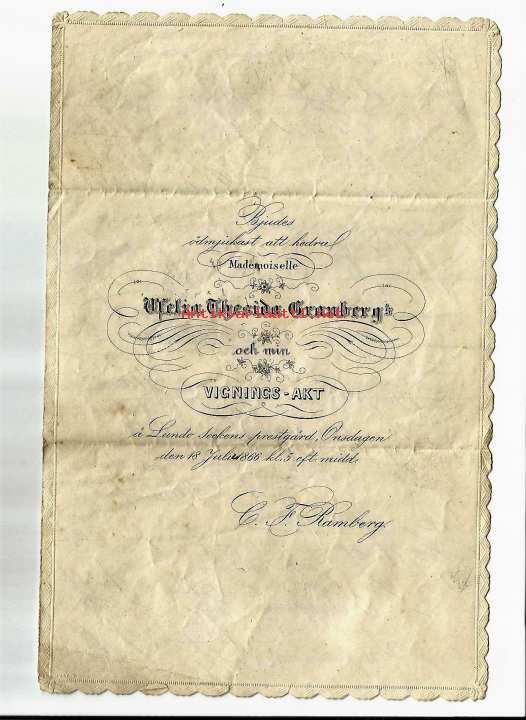 Bjudes
ödmjukast att hedra
Mademoiselle
Granberg's
och min
VIGNINGS-AKT
å Lundo Sockens prestgård, Onsdagen
den 18 Juli 1866 kl. 5 eft. midd.
C. F. Ramberg